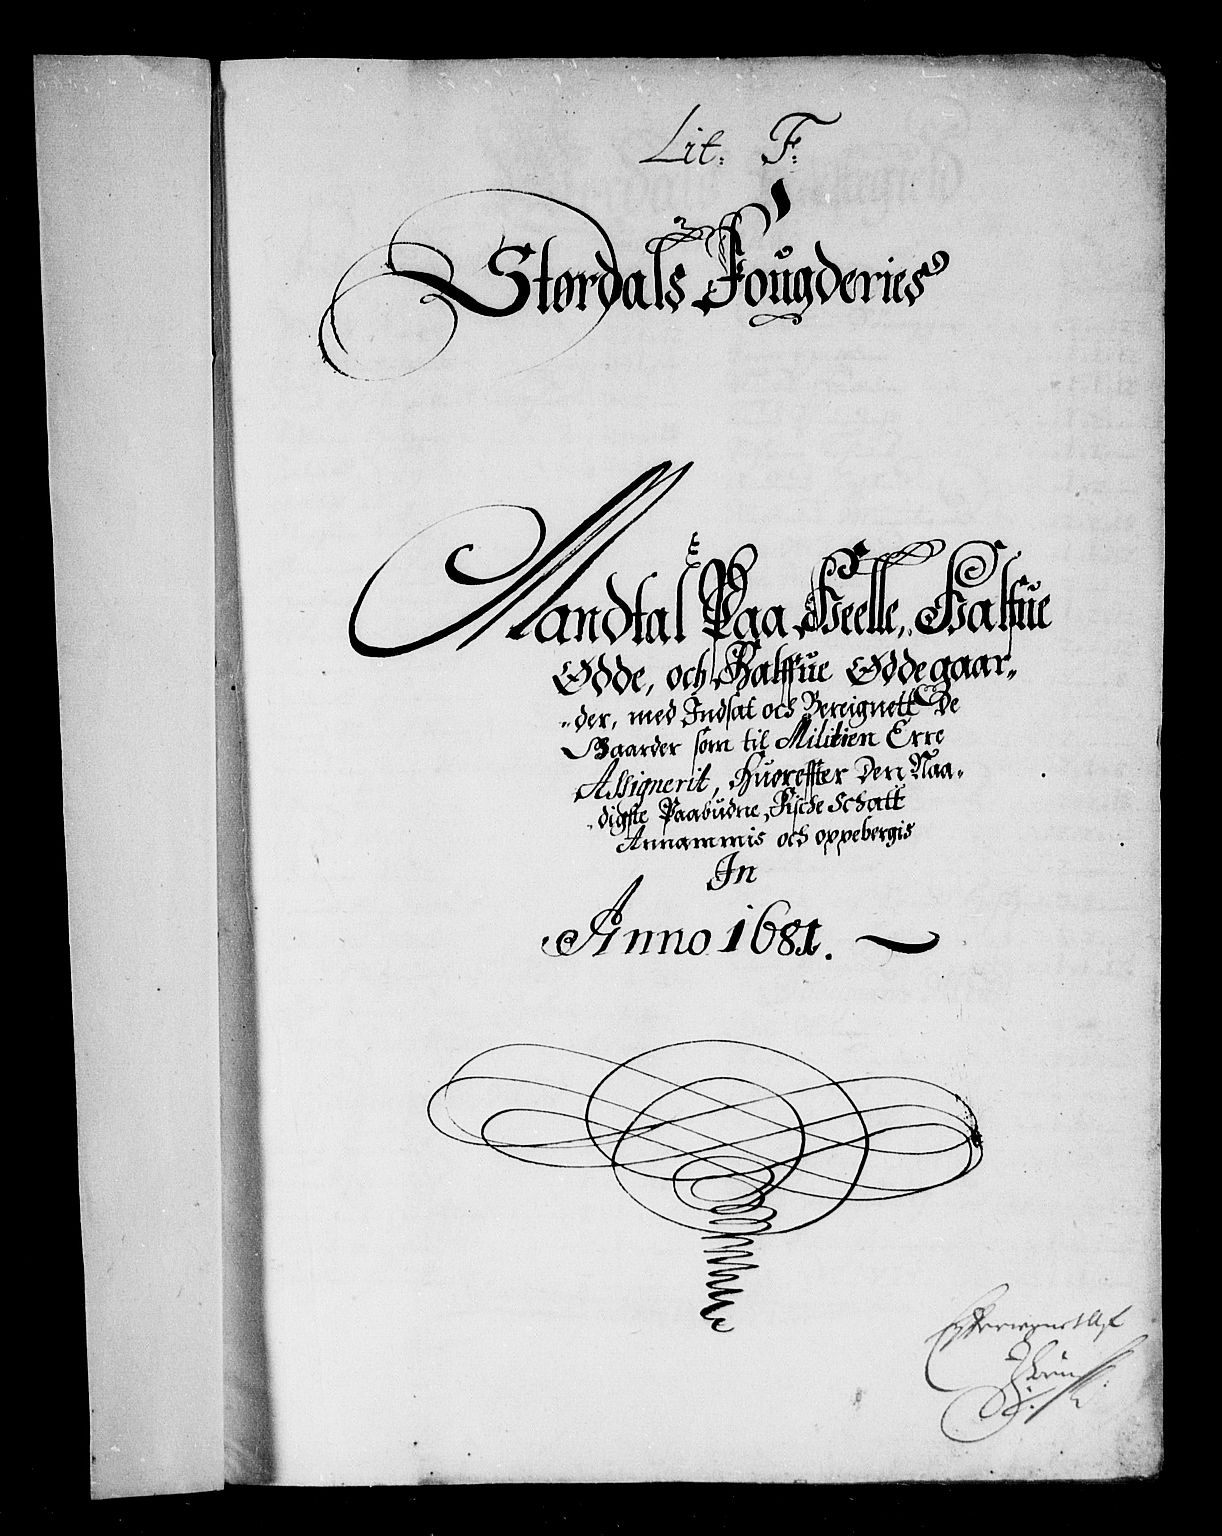 Lit: F:
Størdals Fougderies
Mandtal Paa Heelle, Halfue
Ødde, och Halffue Øddegaar„
„der, med Indsat och Bereignett De
Gaarder som til Militien Erre
Assignerit, Huoreffter Den Naa„
„digste Paabudne, Kische Schatt
Annammis och oppebergis
In
Anno 1681.